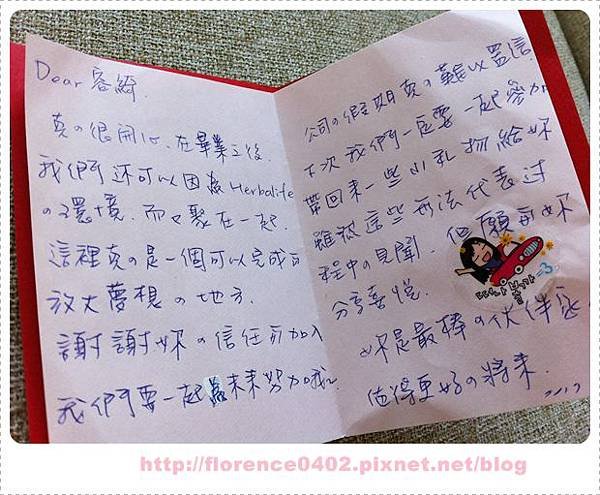 Dear 容綺.
真の很開心. 在畢業之後.
我們還可以因為 Herbalife
の環境. 而又聚在一起.
這裡真の是一個可以完成而
放大夢想の地方.
謝謝妳の信任而加入
我們要一起為未來努力哦~
公司の假期真の難以置信
下次我們一定要一起參加
帶回來一些小礼物給妳
雖然這些無法代表過
程中の見聞. 但願和妳
分享喜悅.
妳是最棒の伙伴
值得更好の將來.
http://florence0402.pixnet.net/blog